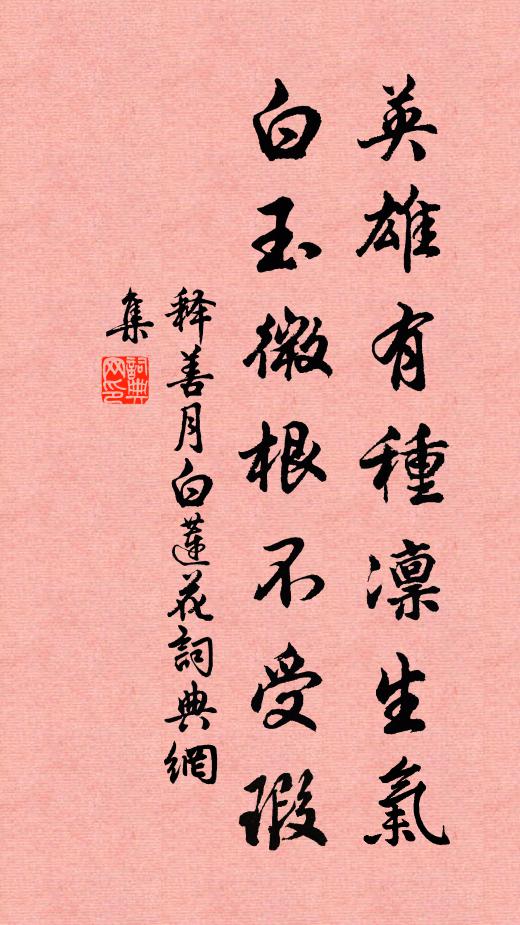 英雄有種凛生氣
白玉微根不受瑕
释善月白蓮花詞典網
集
詞典网印